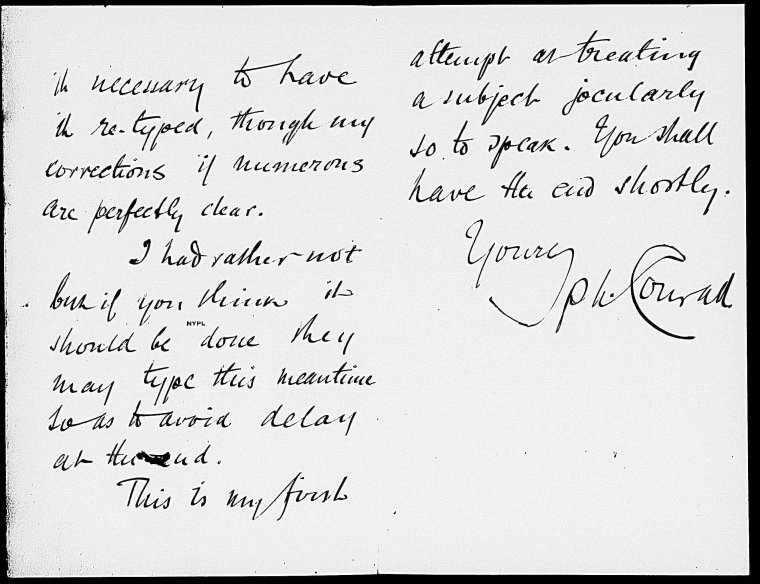 it necessary to have
it re-typed, though my
corrections if numerous
are perfectly clear.
I had rather not
but if you think it
should be done they
NYPL
may type this meantime
so as to avoid delay
at the end.
This is my first
attempt at treating
a subject jocularly
so to speak. You shall
have the end shortly.
Yours
Jph. Conrad